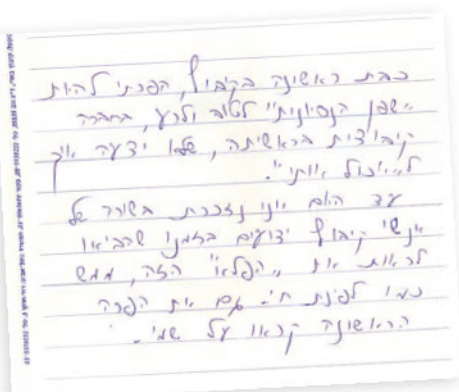 כבת ראשונה בקיבוץ, הפכתי להיות
"שפן הנסיונות" לטוב ולרע, בחברה
קיבוצית בראשיתה, שלא ידעה איך
ל"אכול אותי".
עד היום אני נזכרת בשורה של
אנשי קיבוץ ידועים בזמנו שהביאו
לראות את "הפלא" הזה, ממש
כמו לפינת חי. גם את הפרה
הראשונה קראו על שמי.